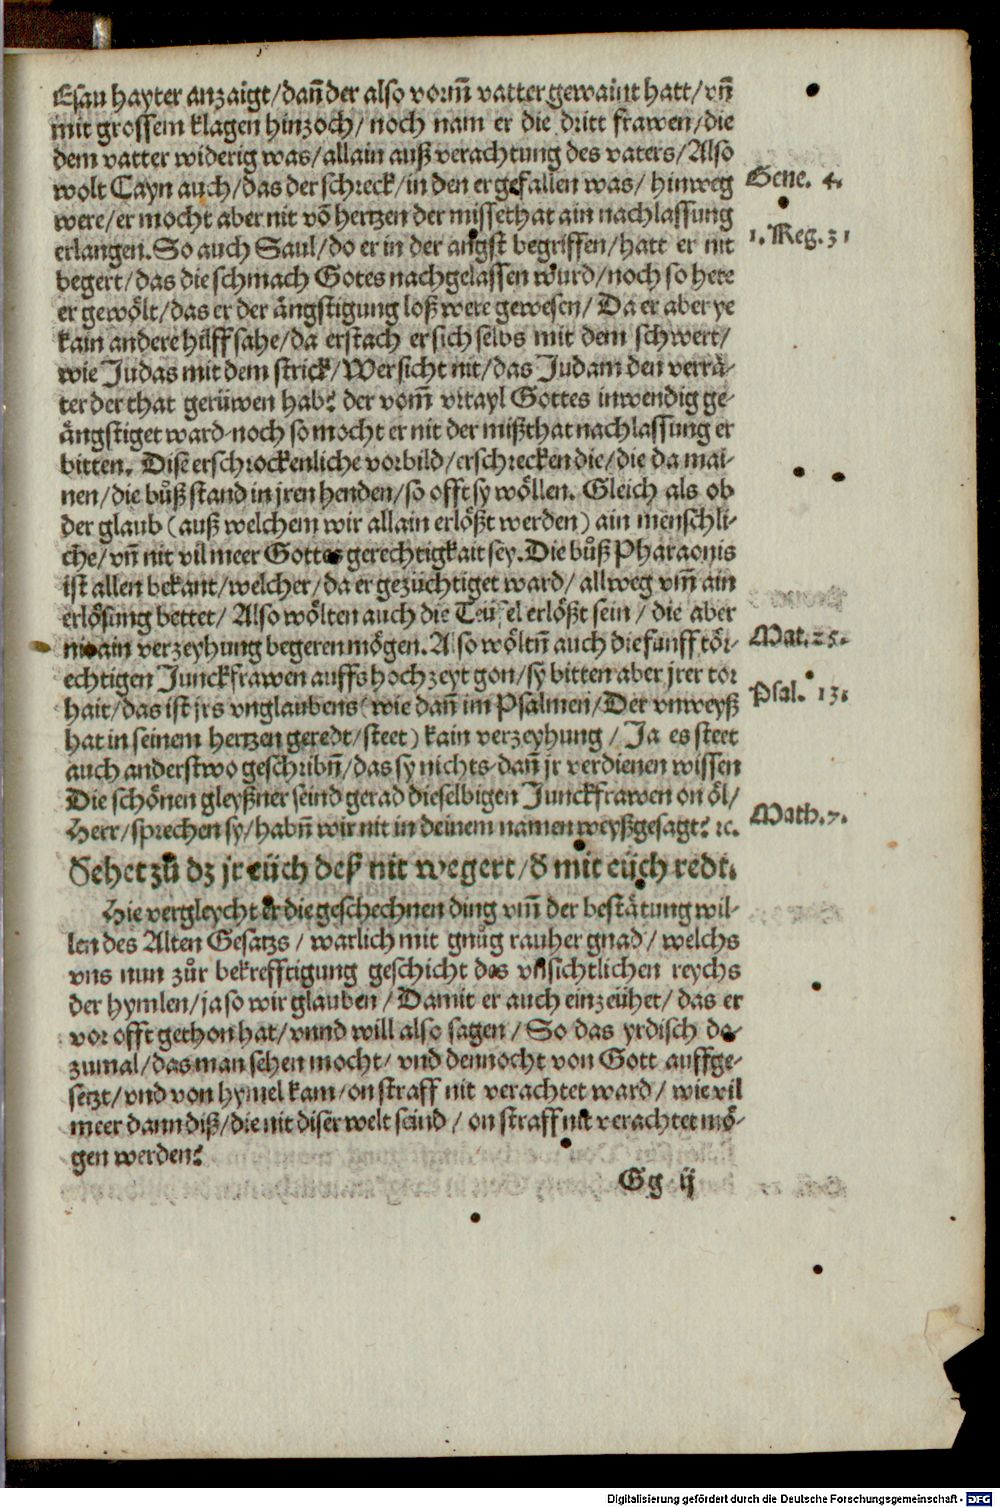 Esau hayter anzaigt/dañ der also vorm̃ vatter gewaint hatt/vñ
mit grossem klagen hinzoch/noch nam er die dritt frawen/die
dem vatter widerig was/allain auß verachtung des vaters/Also
wolt Cayn auch/das der schreck/in den er gefallen was/hinweg
Gene. 4.
were/er mocht aber nit võ hertzen der missethat ain nachlassung
erlangen. So auch Saul/do er in der angst begriffen/hatt er nit
1. Reg. 31
begert/das die schmach Gotes nachgelassen wurd/noch so hete
er gewölt/das er der ängstigung loß were gewesen/Da er aber ye
kain andere hilff sahe/da erstach er sich selbs mit dem schwert/
wie Judas mit dem strick/Wer sicht nit/das Judam den verrä-
ter der that gerüwen hab? der vom̃ vrtayl Gottes inwendig ge-
ängstiget ward noch so mocht er nit der mißthat nachlassung er
bitten. Dise erschrockenliche vorbild/erschrecken die/die da mai-
nen/die bůß stand in jren henden/so offt sy wöllen. Gleich als ob
der glaub (auß welchem wir allain erlößt werden) ain menschli-
che/vñ nit vil meer Gottes gerechtigkait sey. Die bůß Pharaonis
ist allen bekant/welcher/da er gezüchtiget ward/allweg vm̃ ain
erlösung bettet/Also wölten auch die Teüfel erlößt sein/die aber
nie ain verzeyhung begeren mögen. Also wöltñ auch die funff töri-
Mat. 25.
echtigen Junckfrawen auffs hochzeyt gon/sy bitten aber jrer tor
hait/das ist jrs vnglaubens (wie dañ im Psalmen/Der vnweyß
Psal. 13.
hat in seinem hertzen geredt/steet) kain verzeyhung/Ja es steet
auch anderstwo geschribñ/das sy nichts dañ jr verdienen wissen
Die schönen gleyßner seind gerad dieselbigen Junckfrawen on öl/
Herr/sprechen sy/habñ wir nit in deinem namen weyßgesagt? ꝛc.
Math. 7.
Sehet zů dz jr eüch deß nit wegert/ď mit eüch redt.
Hie vergleycht er die geschechnen ding vm̃ der bestätung wil-
len des Alten Gesatzs/warlich mit gnůg rauher gnad/welchs
vns nun zůr bekrefftigung geschicht des vnsichtlichen reychs
der hymlen/ja so wir glauben/Damit er auch einzeühet/das er
vor offt gethon hat/vnnd will also sagen/So das yrdisch da-
zumal/das man sehen mocht/vnd dennocht von Gott auffge-
setzt/vnd von hymel kam/on straff nit verachtet ward/wie vil
meer dann diß/die nit diser welt seind/on straff nit verachtet mö-
gen werden?
Gg ij
Digitalisierung gefördert durch die Deutsche Forschungsgemeinschaft - DFG